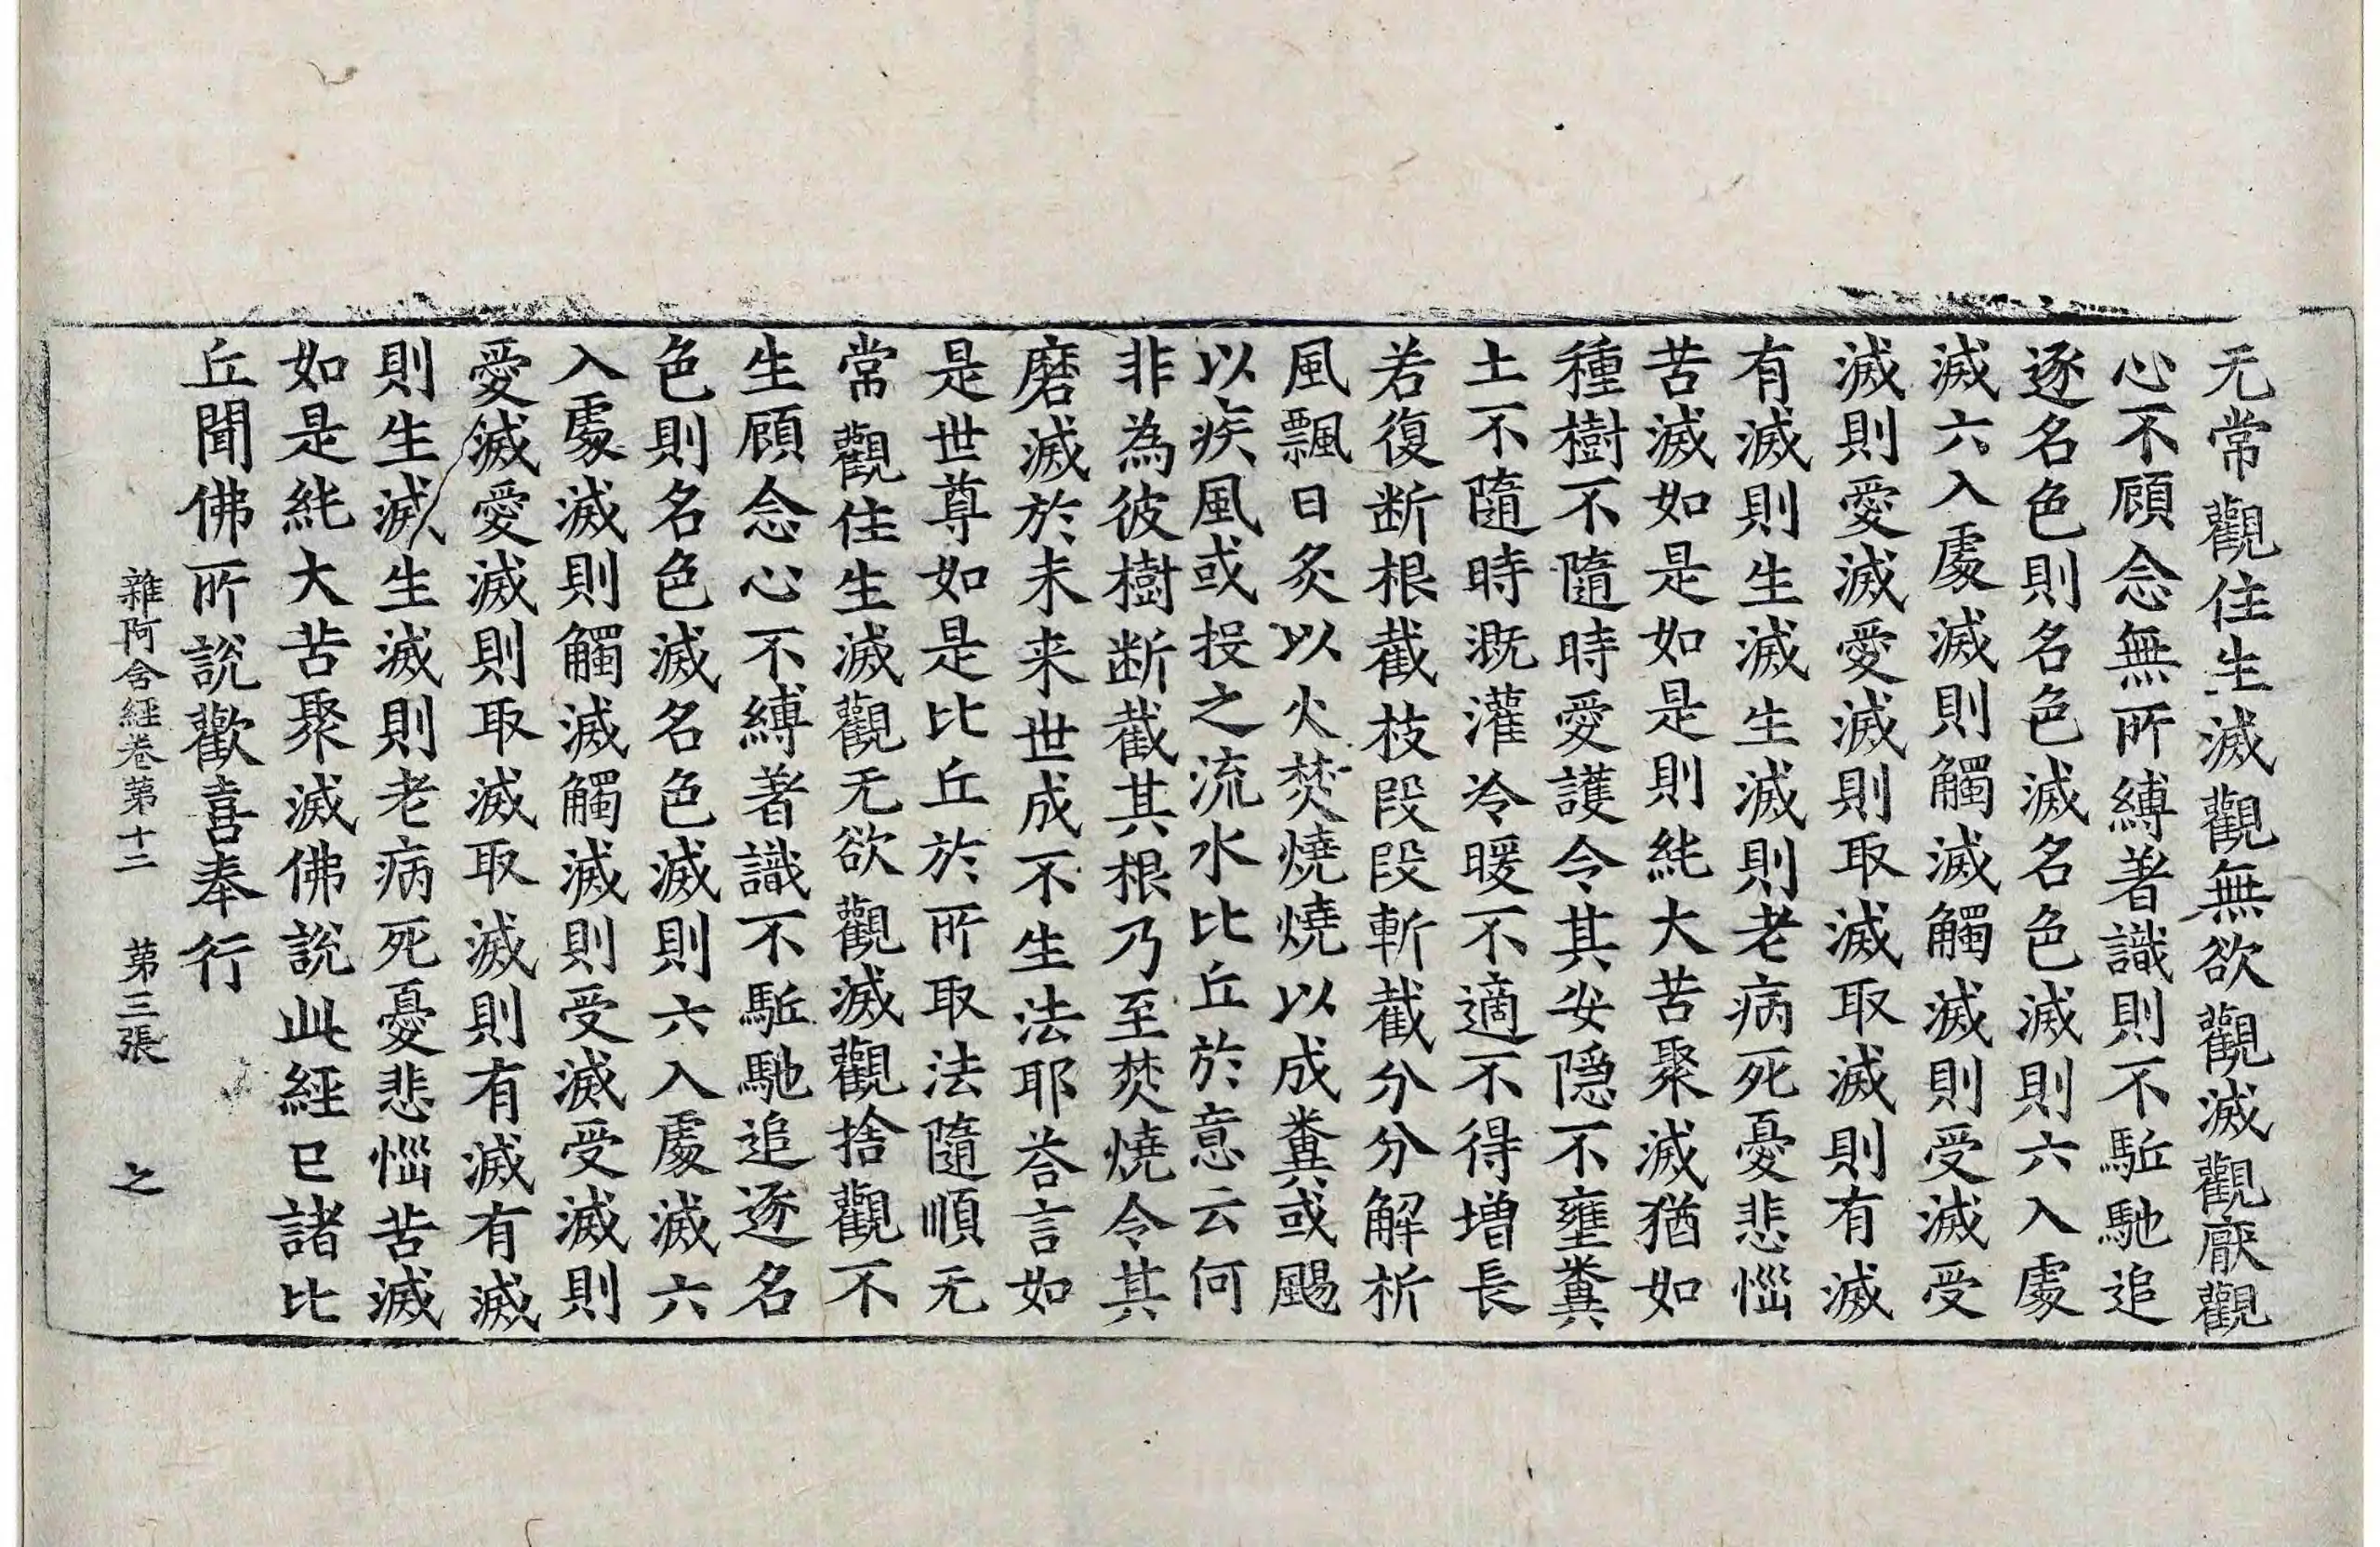 无常觀住生滅觀無欲觀滅觀厭觀
心不顧念無所縛著識則不駈馳追
逐名色則名色滅名色滅則六入處
滅六入處滅則觸滅觸滅則受滅受
滅則愛滅愛滅則取滅取滅則有滅
有滅則生滅生滅則老病死憂悲惱
苦滅如是如是則純大苦聚滅猶如
種樹不隨時愛護令其安隱不壅糞
土不隨時溉灌冷暖不適不得增長
若復断根截枝段段斬截分分解析
風飄日炙以火焚燒燒以成糞或颺
以疾風或投之流水比丘於意云何
非為彼樹断截其根乃至焚燒令其
磨滅於未来世成不生法耶荅言如
是世尊如是比丘於所取法隨順无
常觀住生滅觀无欲觀滅觀捨觀不
生顧念心不縛著識不駈馳追逐名
色則名色滅名色滅則六入處滅六
入處滅則觸滅觸滅則受滅受滅則
愛滅愛滅則取滅取滅則有滅有滅
則生滅生滅則老病死憂悲惱苦滅
如是純大苦聚滅佛說此經已諸比
丘聞佛所說歡喜奉行
雜阿含經卷第十二 第三張 之